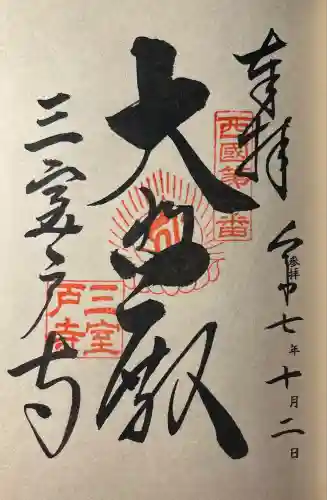 奉拝
令和七年十月二日
参拝
西國第十番
大悲殿
三室戸寺
三室
戸寺